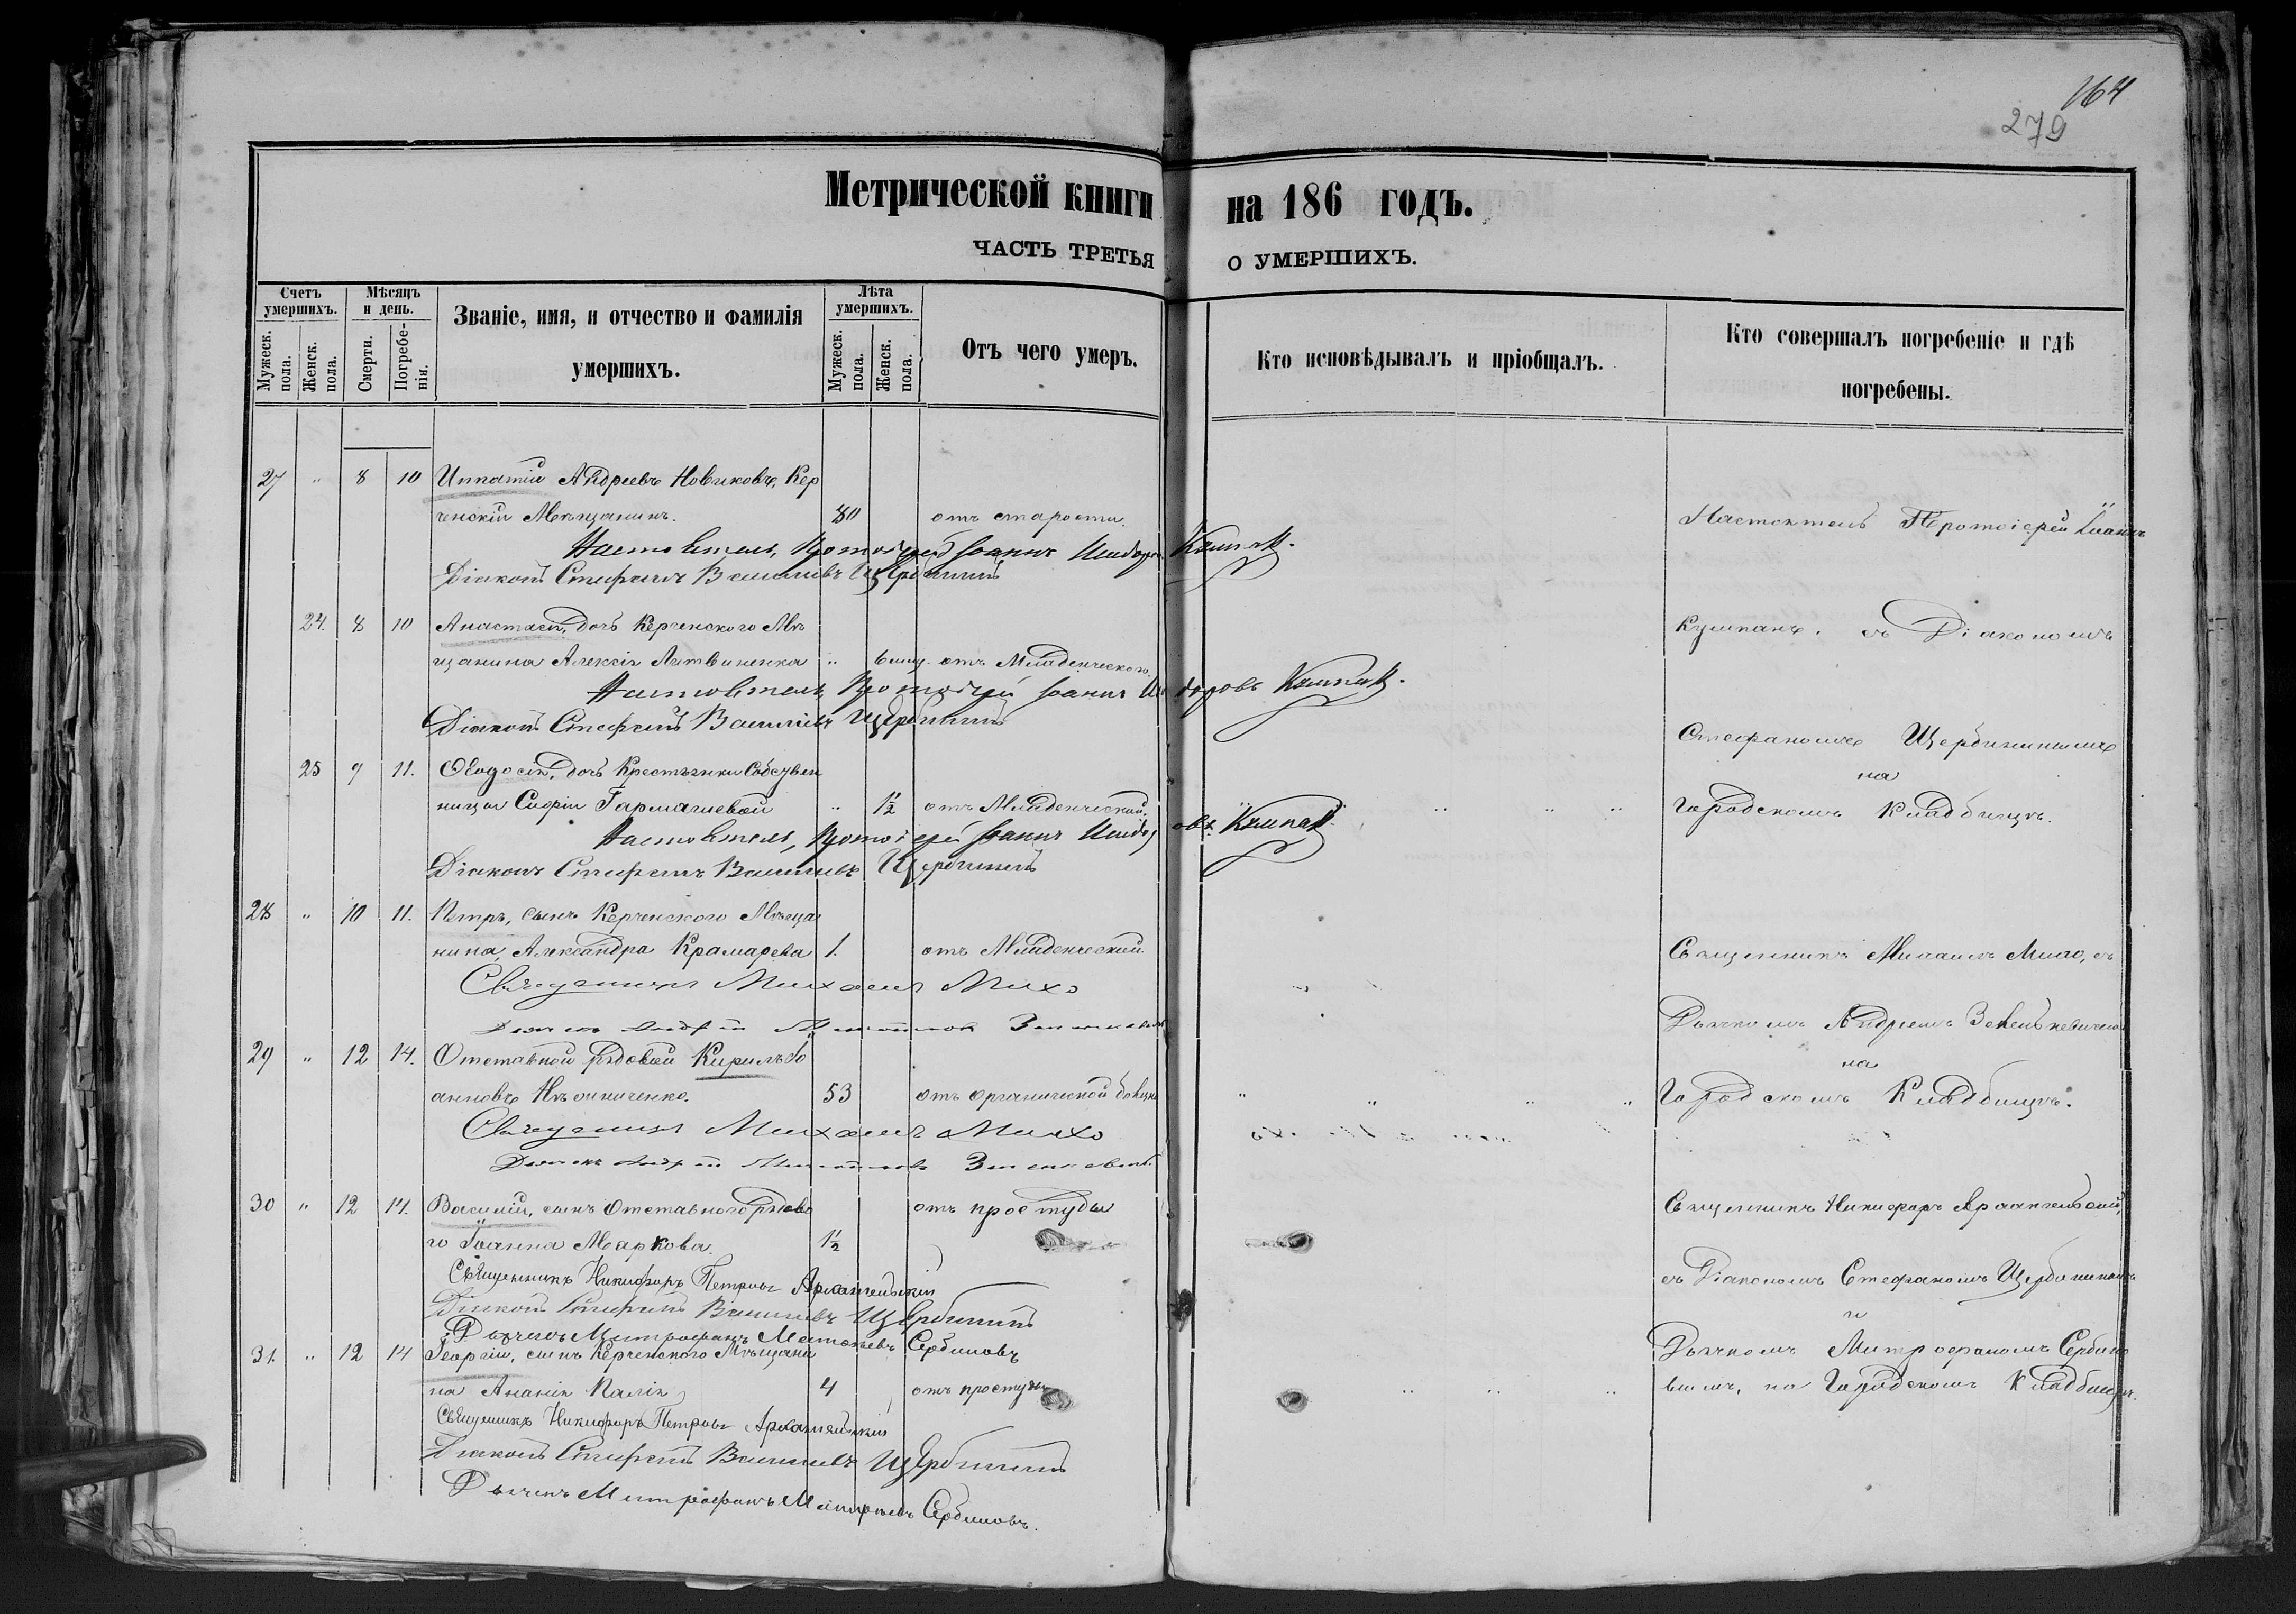 164
279
Метрической книги на 186 годъ.
ЧАСТЬ ТРЕТЬЯ О УМЕРШИХЪ.
Счетъ умершихъ.
Мужеск. пола.
Женск. пола.
Мѣсяцъ и день.
Смерти.
Погребенія.
Званіе, имя, и отчество и фамилія умершихъ.
Лѣта умершихъ.
Мужеск. пола.
Женск. пола.
Отъ чего умеръ.
Кто исповѣдывалъ и пріобщалъ.
Кто совершалъ погребеніе и гдѣ погребены.
27 " 8 10 Ипатій Андреевъ Новиковъ, Кер
ченскій Мѣщанинъ. 80 отъ старости.
Настоятель Протоіерей Іоаннъ
Настоятель, Протоіерей Іоаннъ
Діаконъ Стефанъ Васильевъ Щербининъ
24. 8 10 Анастасія, дочь Керченского Мѣ
щанина Алексія Литвиненка " отъ Младенческого
съ Діакономъ
Настоятель, Протоіерей Іоаннъ
Діаконъ Стефанъ Васильевъ Щербининъ
25 9 11. Ѳеодосія, дочь Крестьянки
Софіи Гармашевой " 1½ отъ Младенческой.
Стефаномъ Щербининымъ
на
Городскомъ Кладбищѣ.
Настоятель, Протоіерей Іоаннъ
Діаконъ Стефанъ Васильевъ Щербининъ
28 " 10 11. Петръ, сынъ Керченского Мѣща
нина, Александра Крамарева 1. отъ Младенческой.
Священникъ Михаилъ Михо, съ
Священникъ Михаилъ Михо
Дьячкомъ Андреемъ Зеленкевичемъ
29 " 12 14. Отставной рядовой Кирилъ Іо
анновъ 53 отъ органической болѣзни
на
Городскомъ Кладбищѣ.
Священникъ Михаилъ Михо
30 " 12 14. Василій, сынъ Отставного рядово
го Іоанна Маркова. 1½ отъ простуды
Священникъ Никифоръ Архангельскій,
Священникъ Никифоръ Петровъ Архангельскій
съ Діакономъ Стефаномъ Щербининымъ
Діаконъ Стефанъ Васильевъ Щербининъ
и
Дьячекъ Митрофанъ Матвѣевъ Сербиновъ
31. " 12 14 Георгій, сынъ Керченского Мѣщани
на Ананія Палія 4 отъ простуды
Дьячкомъ Митрофаномъ Сербино
вымъ, на Городскомъ Кладбищѣ.
Священникъ Никифоръ Петровъ Архангельскій
Діаконъ Стефанъ Васильевъ Щербининъ
Дьячекъ Митрофанъ Матвѣевъ Сербиновъ.